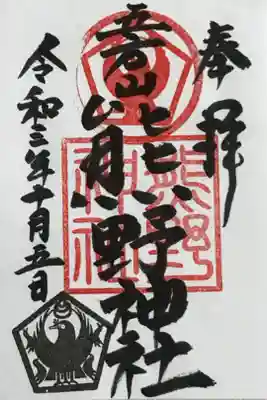 奉拝
青山熊野神社
熊野
神社
令和三年十月五日